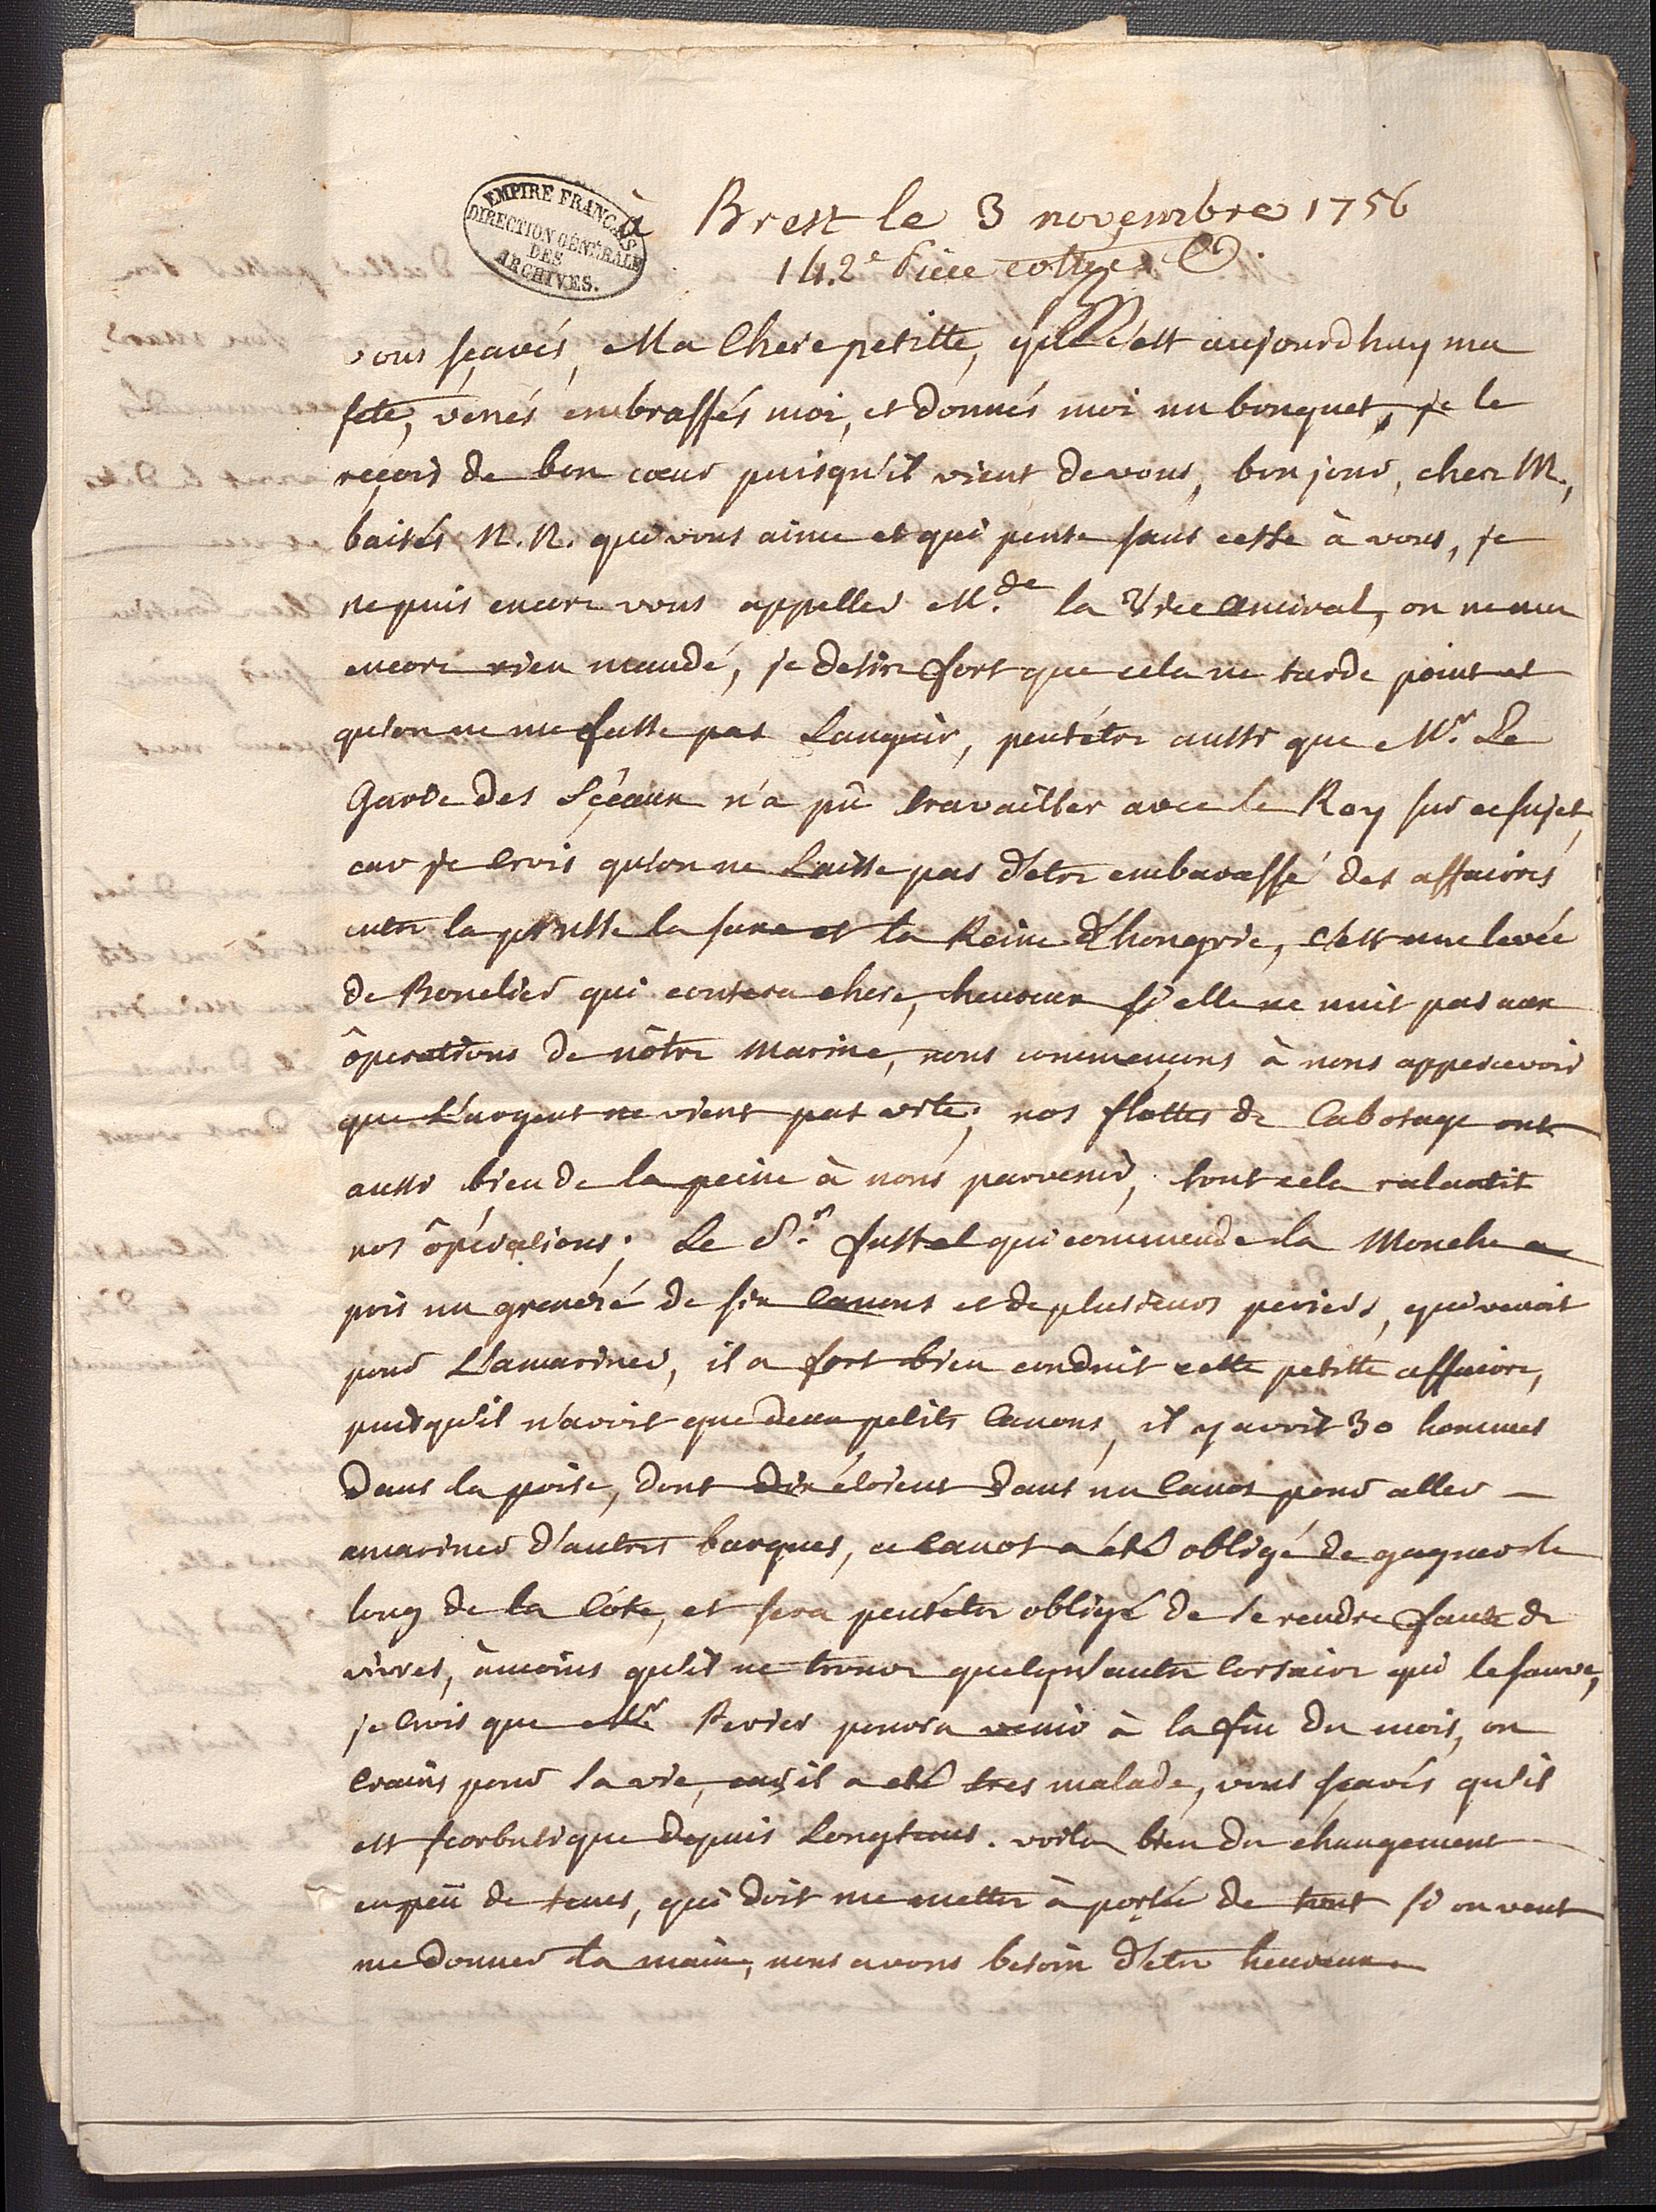 EMPIRE FRANÇAIS
DIRECTION GÉNÉRALE
DES
ARCHIVES.
à Brest le 3 novembre 1756
142e Piece cottee
vous sçavés, Ma Chere petitte, que c'est aujourdhuy ma
fete, venés embrassés moi, et donnés moi un bouquet, je le
reçois de bon cœur puisqu'il vient de vous, bon jour, cher M.,
baisés N. N. qui vous aime et qui pense sans cesse à vous, je
ne puis encore vous appeller M.de la Vice Amiral, on ne m'a
encore rien mandé, je desire fort que cela ne tarde point et
qu'on ne me fasse pas Languir, peutétre aussi que Mr. Le
Garde des Sçeaux n'a pû travailler avec le Roy sur ce sujet,
car je Crois qu'on ne Laisse pas d'etre embarassé des affaires
entre la prusse la saxe et la Reine d'hongrie, c'est une levée
de Bouclier qui coutera chere, heureux si elle ne nuit pas aux
ôperations de nôtre Marine, nous commençons à nous appercevoir
que L'argent ne vient pas vite; nos flottes de Cabotage ont
aussi bien de la peine à nous parvenir, tout cela ralantit
nos ôpérations; Le Sr. fustel qui commende la Mouche a
pris un grenezé de six Canons et de plusieurs periers, qui venoit
pour L'amariner, il a fort bien conduit cette petitte affaire,
puisqu'il n'avoit que deux petits Canons, il y avoit 30 hommes
dans la prise, dont dix étoient dans un Canot pour aller
amariner d'autres barques, ce Canot a été obligé de gagner le
long de la Côte, et sera peutétre obligé de se rendre faute de
vivres, àmoins qu'il ne trouve quelqu'autre Corsaire qui le sauve,
je Crois que Mr. Perier pourra venir à la fin du mois, on
Craint pour sa vie, car il a eté tres malade, vous sçavés qu'il
est scorbutique depuis Longtems. voila bien du changement
en peu de tems, qui doit me mettre à portée de tout si on veut
me donner la main, nous avons besoin d'etre heureux